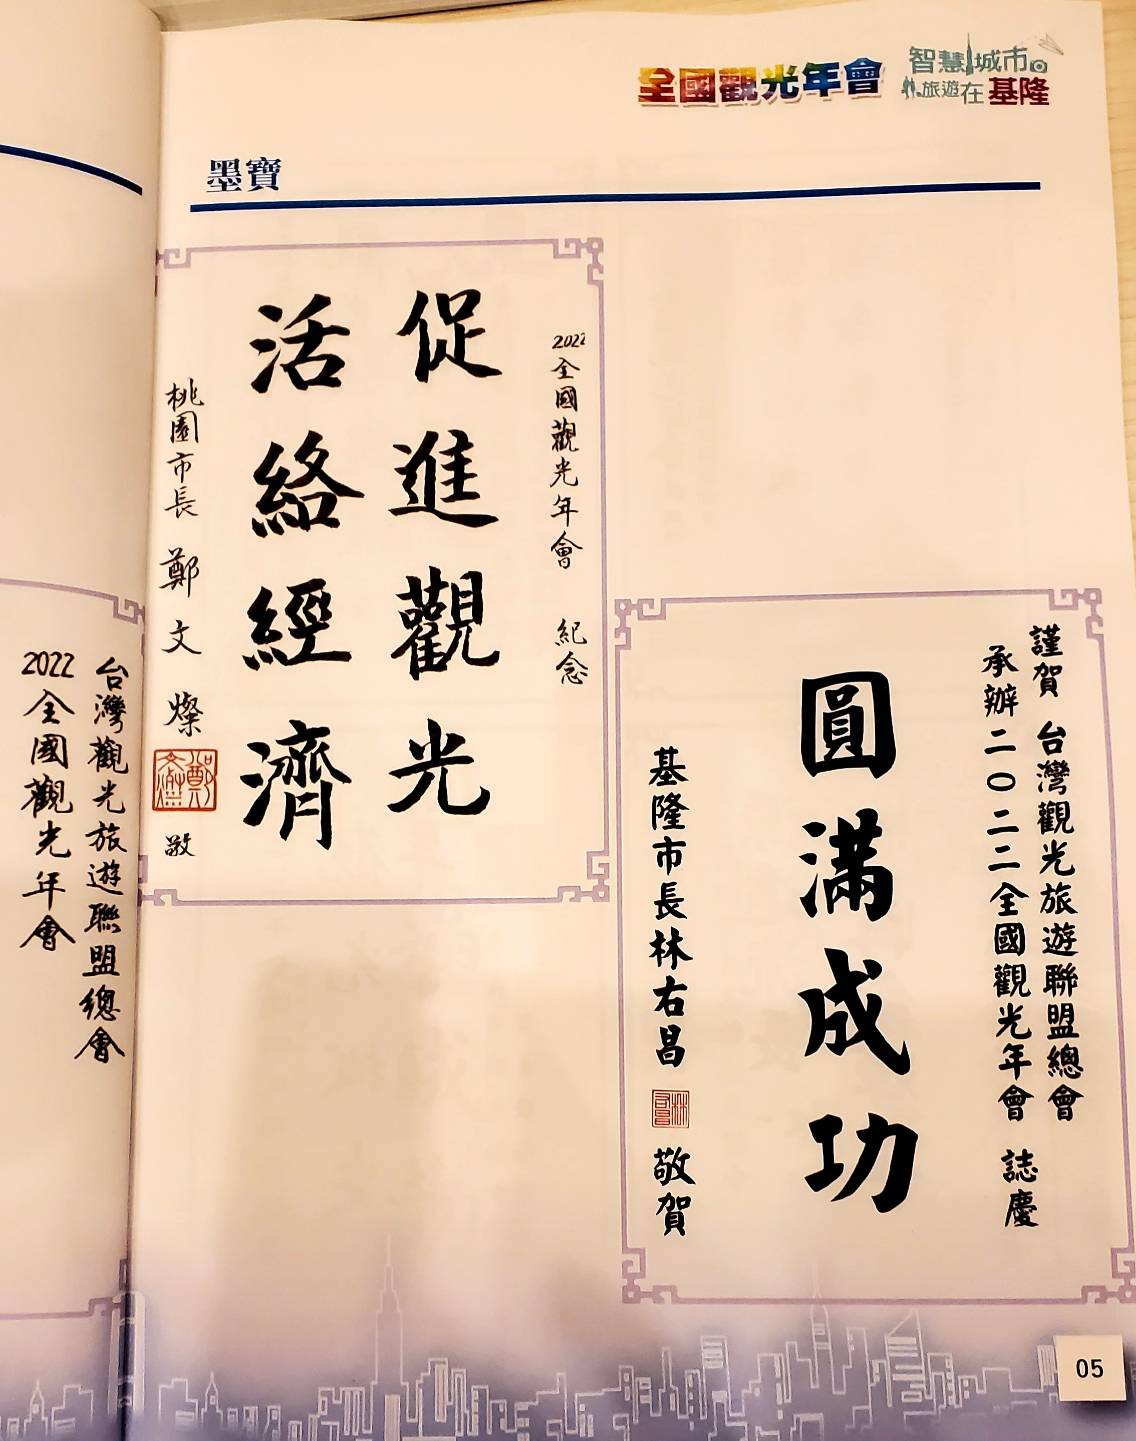 全國觀光年會
智慧城市
旅遊在基隆
墨寶
2022全國觀光年會 紀念
促進觀光
活絡經濟
桃園市長 鄭文燦 敬
謹賀 台灣觀光旅遊聯盟總會
承辦二〇二二全國觀光年會 誌慶
圓滿成功
基隆市長林右昌 敬賀
台灣觀光旅遊聯盟總會
2022全國觀光年會
05